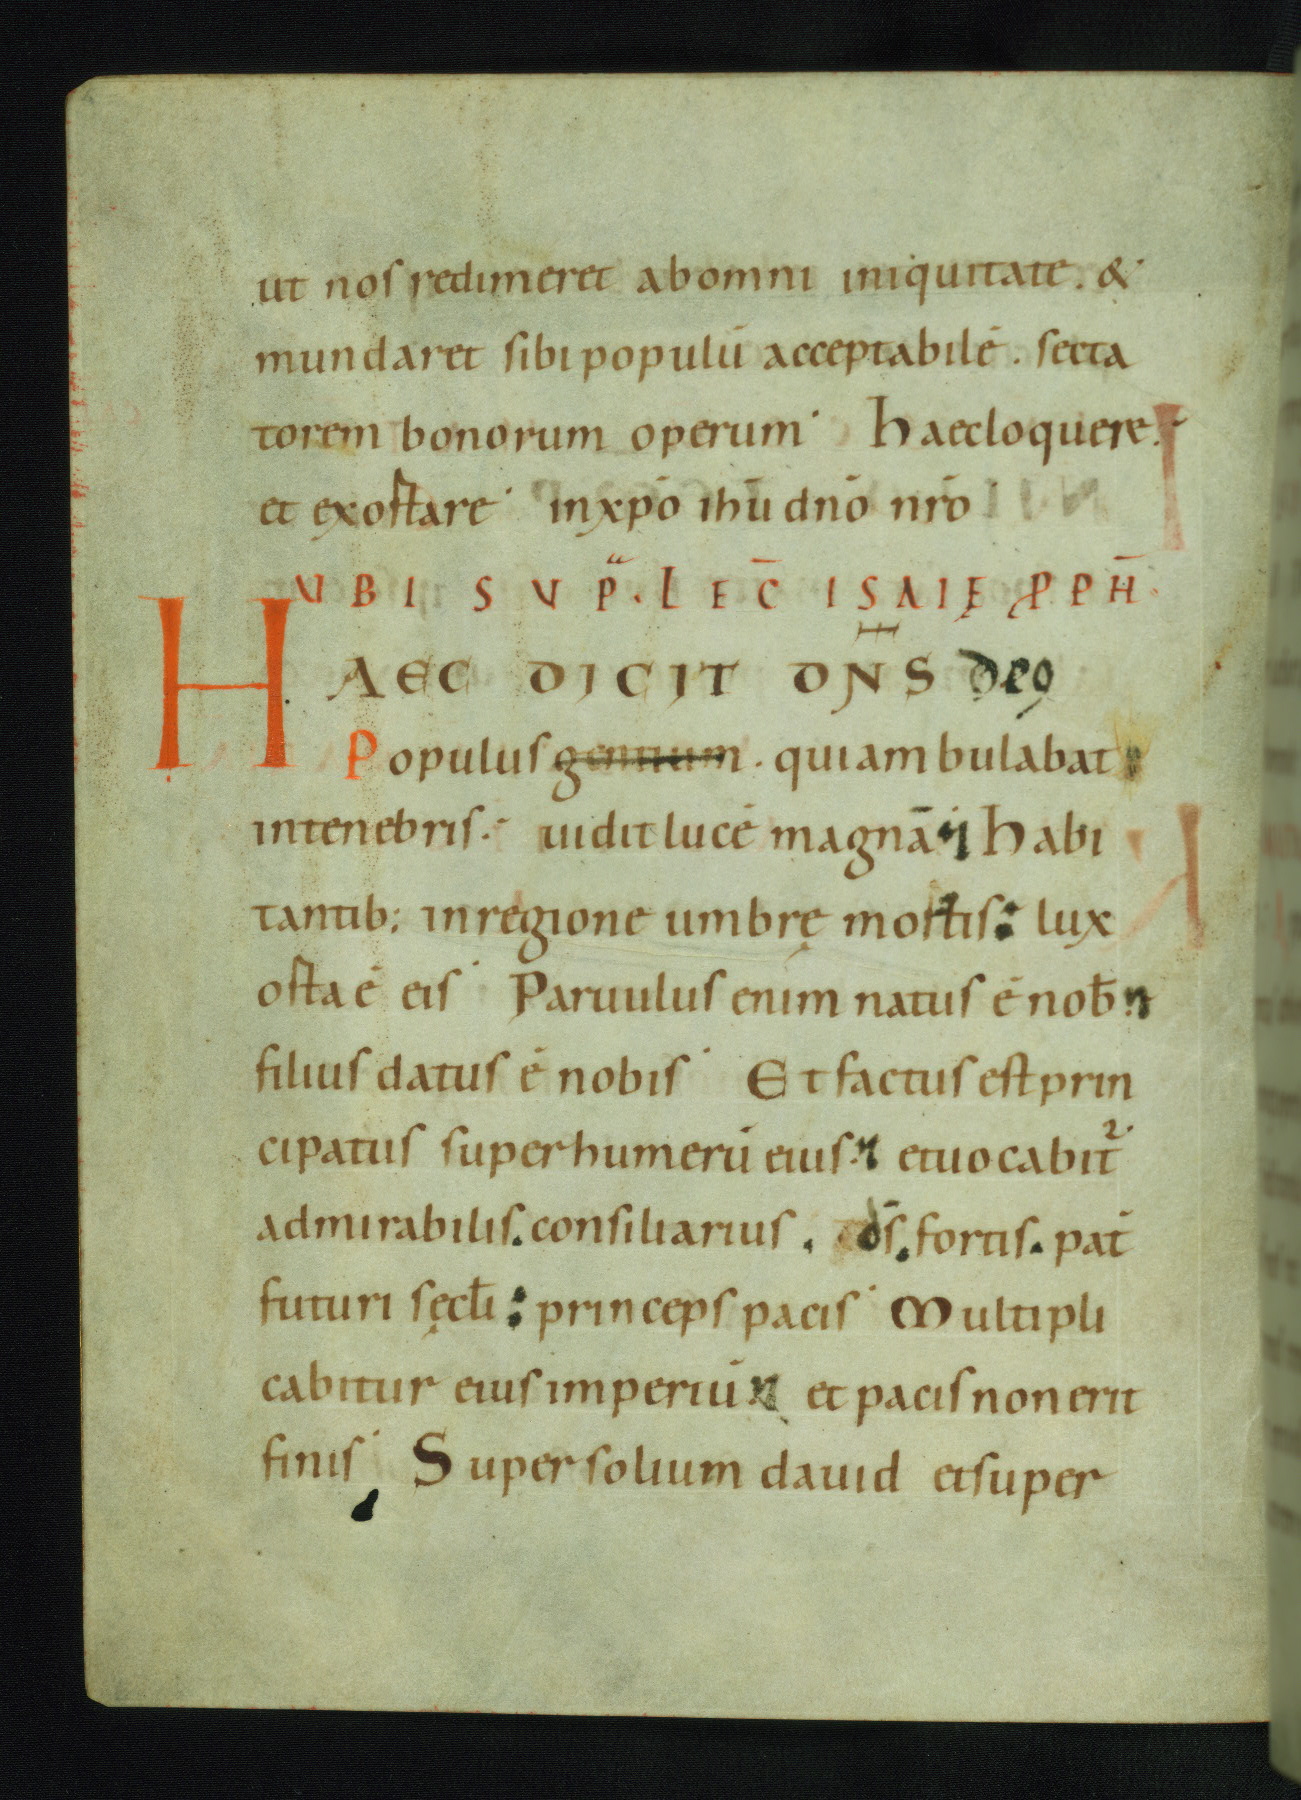 ut nos redimeret abomni iniquitate. &
mundaret sibi populū acceptabilē. secta
torem bonorum operum Haec loquere.
et exortare inxpō ihū dnō nrō
UBI SUP̄. LEC̄ ISAIĘ PPH̄.
HAEC DICIT DN̄S deꝰ
Populus gentium. qui ambulabat
intenebris. uidit lucē magnā Habi
tantib; inregione umbrę mortis: lux
orta ē eis Paruulus enim natus ē nob̄
filius datus ē nobis Et factus est prin
cipatus super humerū eius. et uocabit᷑
admirabilis. consiliarius. ds̄. fortis. pat̄
futuri sęcłi: princeps pacis Multipli
cabitur eius imperiū et pacis non erit
finis Super solium dauid et super